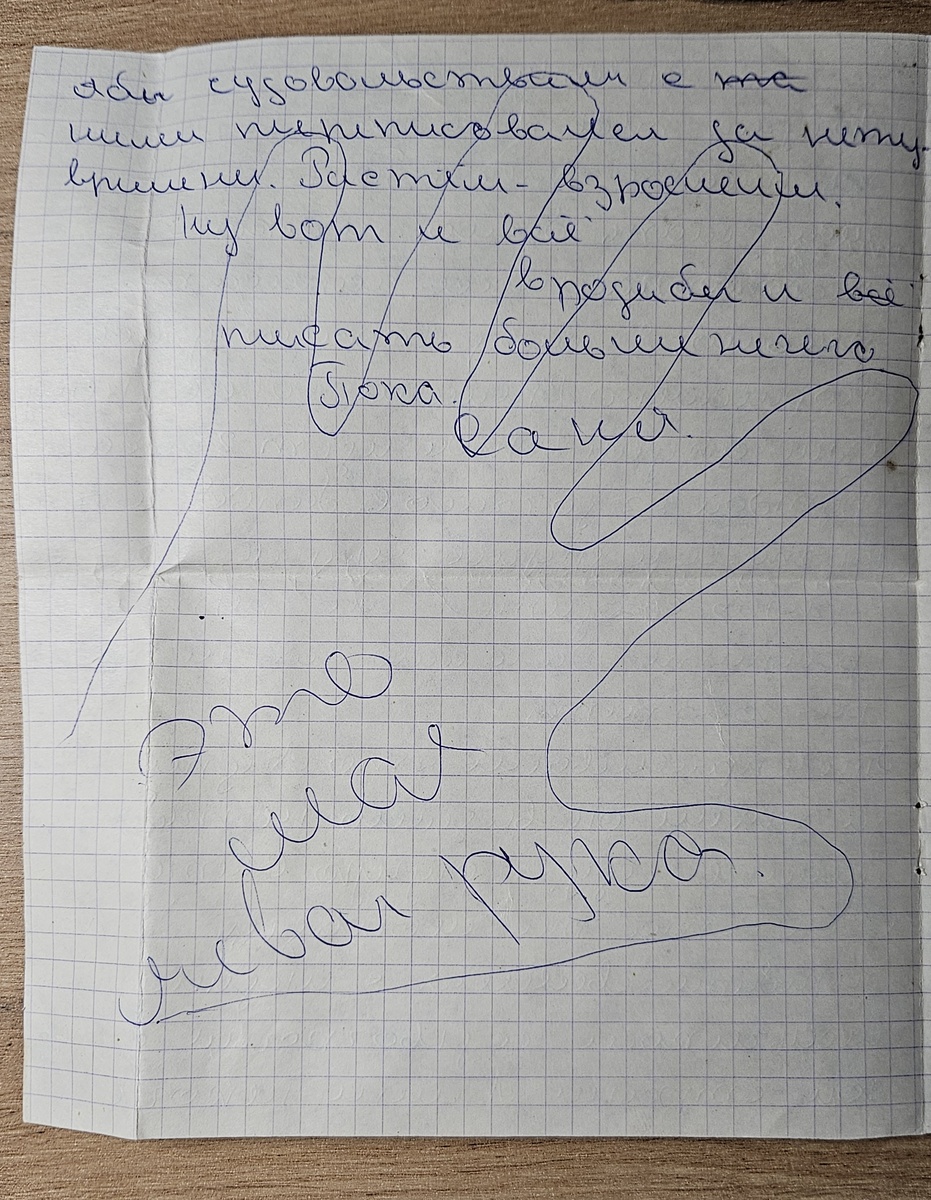 ябы судовольствием с
ними переписовался да нету
времени. Растём - взрослеем.
Ну вот и всё
вродибы и всё
писать больши ничего
Пока.
Саня.
Это
моя
левая рука.